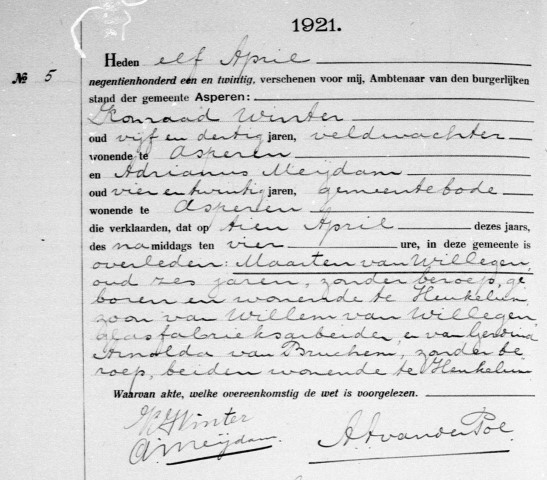 1921.
Heden elf April
№ 5
negentienhonderd een en twintig, verschenen voor mij, Ambtenaar van den burgerlijken
stand der gemeente Asperen:
Konraad Winter
oud vijf en dertig jaren, veldwachter
wonende te Asperen
en Adrianus Meijdam
oud vier en twintig jaren, gemeentebode
wonende te Asperen
die verklaarden, dat op tien April dezes jaars,
des namiddags ten vier ure, in deze gemeente is
overleden: Maarten van Willegen,
oud zes jaren, zonder beroep, ge
boren en wonende te Heukelum,
zoon van Willem van Willegen,
glasfabrieksarbeider, en van
Arnolda van Bruchem, zonder be
roep, beiden wonende te Heukelum
Waarvan akte, welke overeenkomstig de wet is voorgelezen.
Winter
A. Meijdam
A A van der Pol